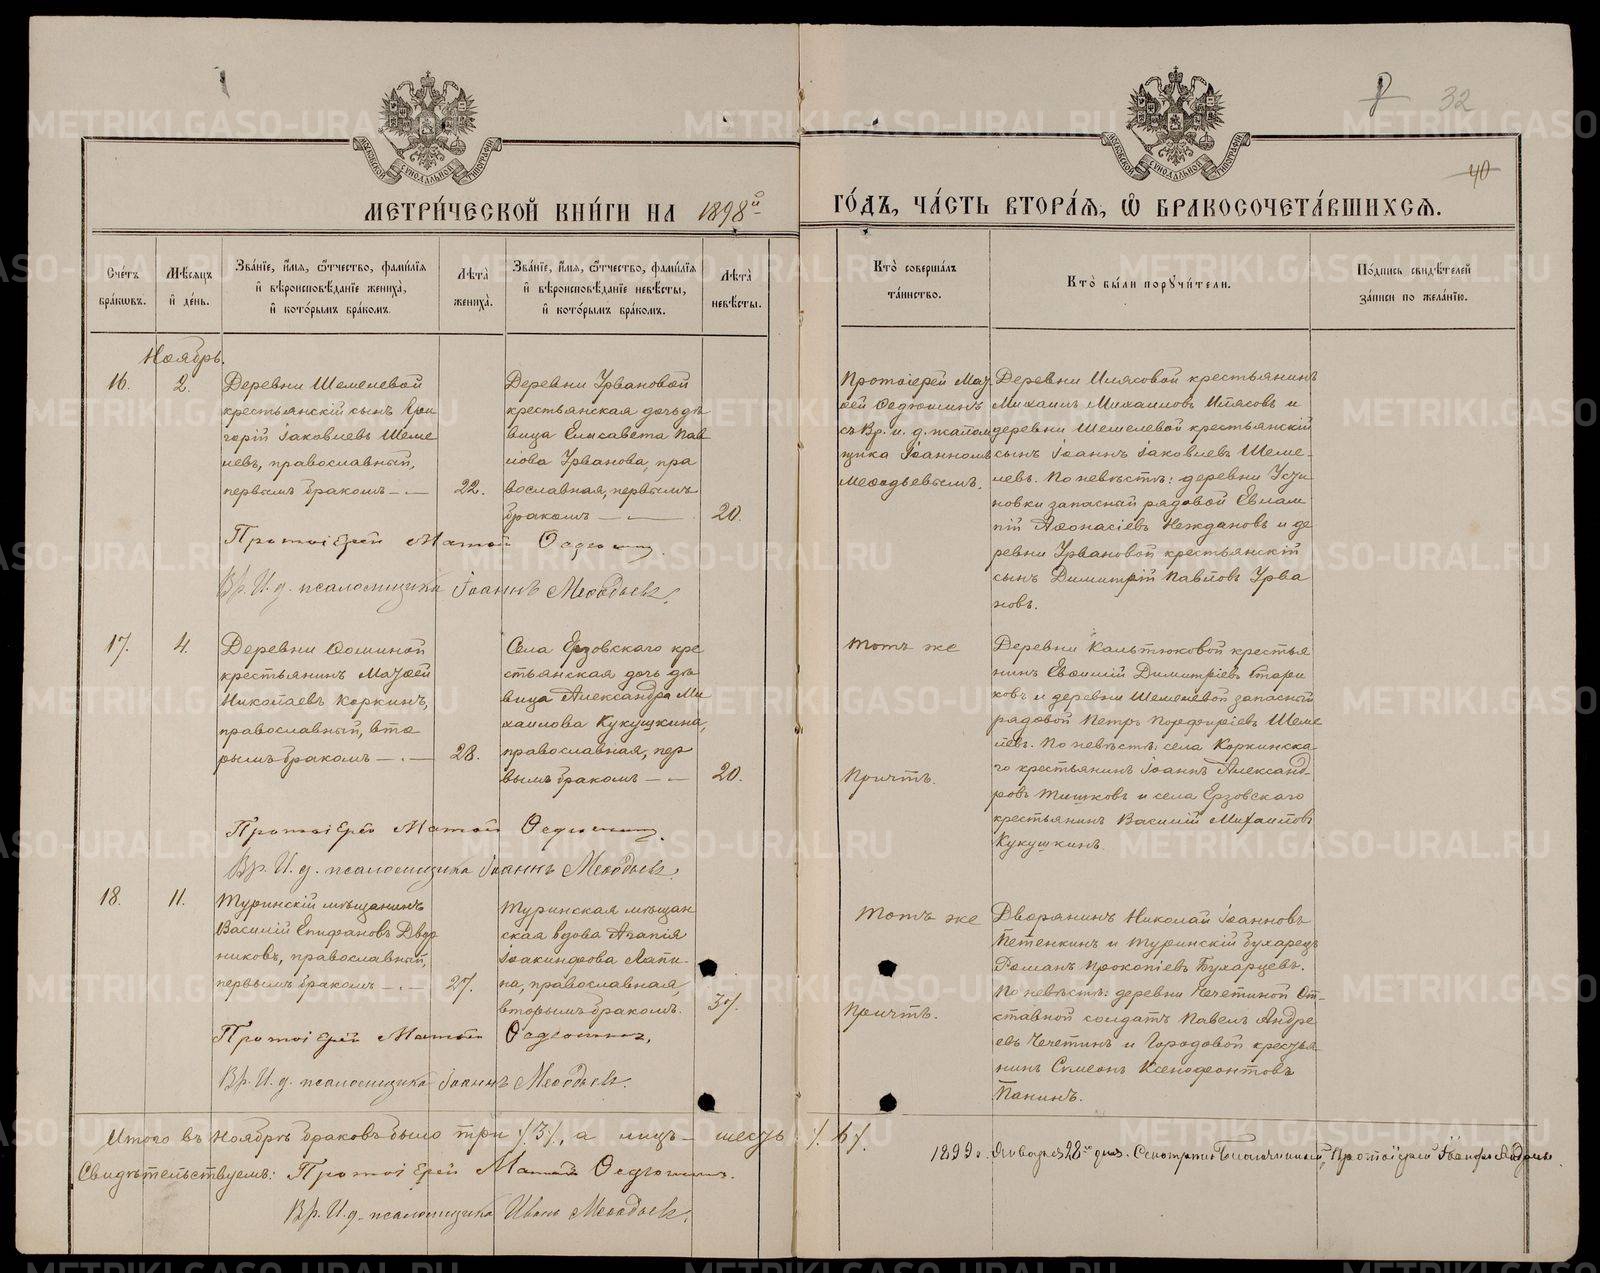 32
40
МОСКОВСКОЙ СѴНОДАЛЬНОЙ ТИПОГРАФІИ
МОСКОВСКОЙ СѴНОДАЛЬНОЙ ТИПОГРАФІИ
МЕТРИ́ЧЕСКОЙ КНИ́ГИ НА 1898й
ГО́ДЪ, ЧА́СТЬ ВТОРА́Я, Ѽ БРАКОСОЧЕТА́ВШИХСЯ.
Сче́тъ
бра́ковъ.
Мѣ́сяцъ
и҆ де́нь.
Зва́нїе, и҆́мя, ѻ҆́тчество, фами́лїя
и҆ вѣроисповѣ́данїе жениха̀,
и҆ кото́рымъ бра́комъ.
Лѣта̀
жениха̀.
Зва́нїе, и҆́мя, ѻ҆́тчество, фами́лїя
и҆ вѣроисповѣ́данїе невѣ́сты,
и҆ кото́рымъ бра́комъ.
Лѣта̀
невѣ́сты.
Кто̀ соверша́лъ
та́инство.
Кто̀ бы́ли порꙋчи́тели.
По́дпись свидѣ́телей
за́писи по жела́нїю.
Ноябрь.
16.
2.
Деревни Шемелевой
крестьянскій сынъ Гри
горій Іаковлевъ Шеме
левъ, православный,
первымъ бракомъ
22.
Деревни Урвановой
крестьянская дочь дѣ
вица Елисавета Пав
лова Урванова, пра
вославная, первымъ
бракомъ
20.
Протоіерей Мат
ѳей Ѳедюшинъ
съ Вр. и. д. псалом
щика Іоанномъ
Меѳодьевымъ.
Деревни Илясовой крестьянинъ
Михаилъ Михаиловъ Илясовъ и
деревни Шемелевой крестьянскій
сынъ Іоаннъ Іаковлевъ Шеме-
левъ. По невѣстѣ: деревни Усти
новки запасный рядовой Евлам
пій Аѳонасіевъ Неждановъ и де
ревни Урвановой крестьянскій
сынъ Димитрій Павловъ Урва
новъ.
Протоіерей Матѳей Ѳедюшинъ.
Вр. И. д. псаломщика Іоаннъ Меѳодьевъ.
17.
4.
Деревни Ѳоминой
крестьянинъ Матѳей
Николаевъ Коркинъ,
православный, вто
рымъ бракомъ
28.
Села Ерзовскаго кре
стьянская дочь дѣ
вица Александра Ми
хаилова Кукушкина,
православная, пер
вымъ бракомъ
20.
Тотъ же
Причтъ.
Деревни Кальтюковой крестья
нинъ Евѳимій Димитріевъ Стари
ковъ и деревни Шемелевой запасный
рядовой Петръ Порфиріевъ Шеме
левъ. По невѣстѣ: села Коркинска
го крестьянинъ Іоаннъ Александ-
ровъ Тишковъ и села Ерзовскаго
крестьянинъ Василій Михаиловъ
Кукушкинъ.
Протоіерей Матѳей Ѳедюшинъ.
Вр. И. д. псаломщика Іоаннъ Меѳодьевъ.
18.
11.
Туринскій мѣщанинъ
Василій Епифановъ Двор
никовъ, православный,
первымъ бракомъ
27.
Туринская мѣщан
ская вдова Агапія
Іоакинфова Лапи-
на, православная,
вторымъ бракомъ.
37.
Тотъ же
Причтъ.
Дворянинъ Николай Іоанновъ
Петенкинъ и туринскій бухарецъ
Романъ Прокопіевъ Бухарцевъ.
По невѣстѣ: деревни Чечетиной от-
ставной солдатъ Павелъ Андре
евъ Чечетинъ и Городовой крестья-
нинъ Симеонъ Ксенофонтовъ
Панинъ.
Протоіерей Матѳей Ѳедюшинъ.
Вр. И. д. псаломщика Іоаннъ Меѳодьевъ.
Итого въ Ноябрѣ браковъ было три /3/, а лицъ шесть /6/.
Свидѣтельствуемъ: Протоіерей Матѳей Ѳедюшинъ.
Вр. И. д. псаломщика Иванъ Меѳодьевъ.
1899 г. Января 28го дня. Протоіерей